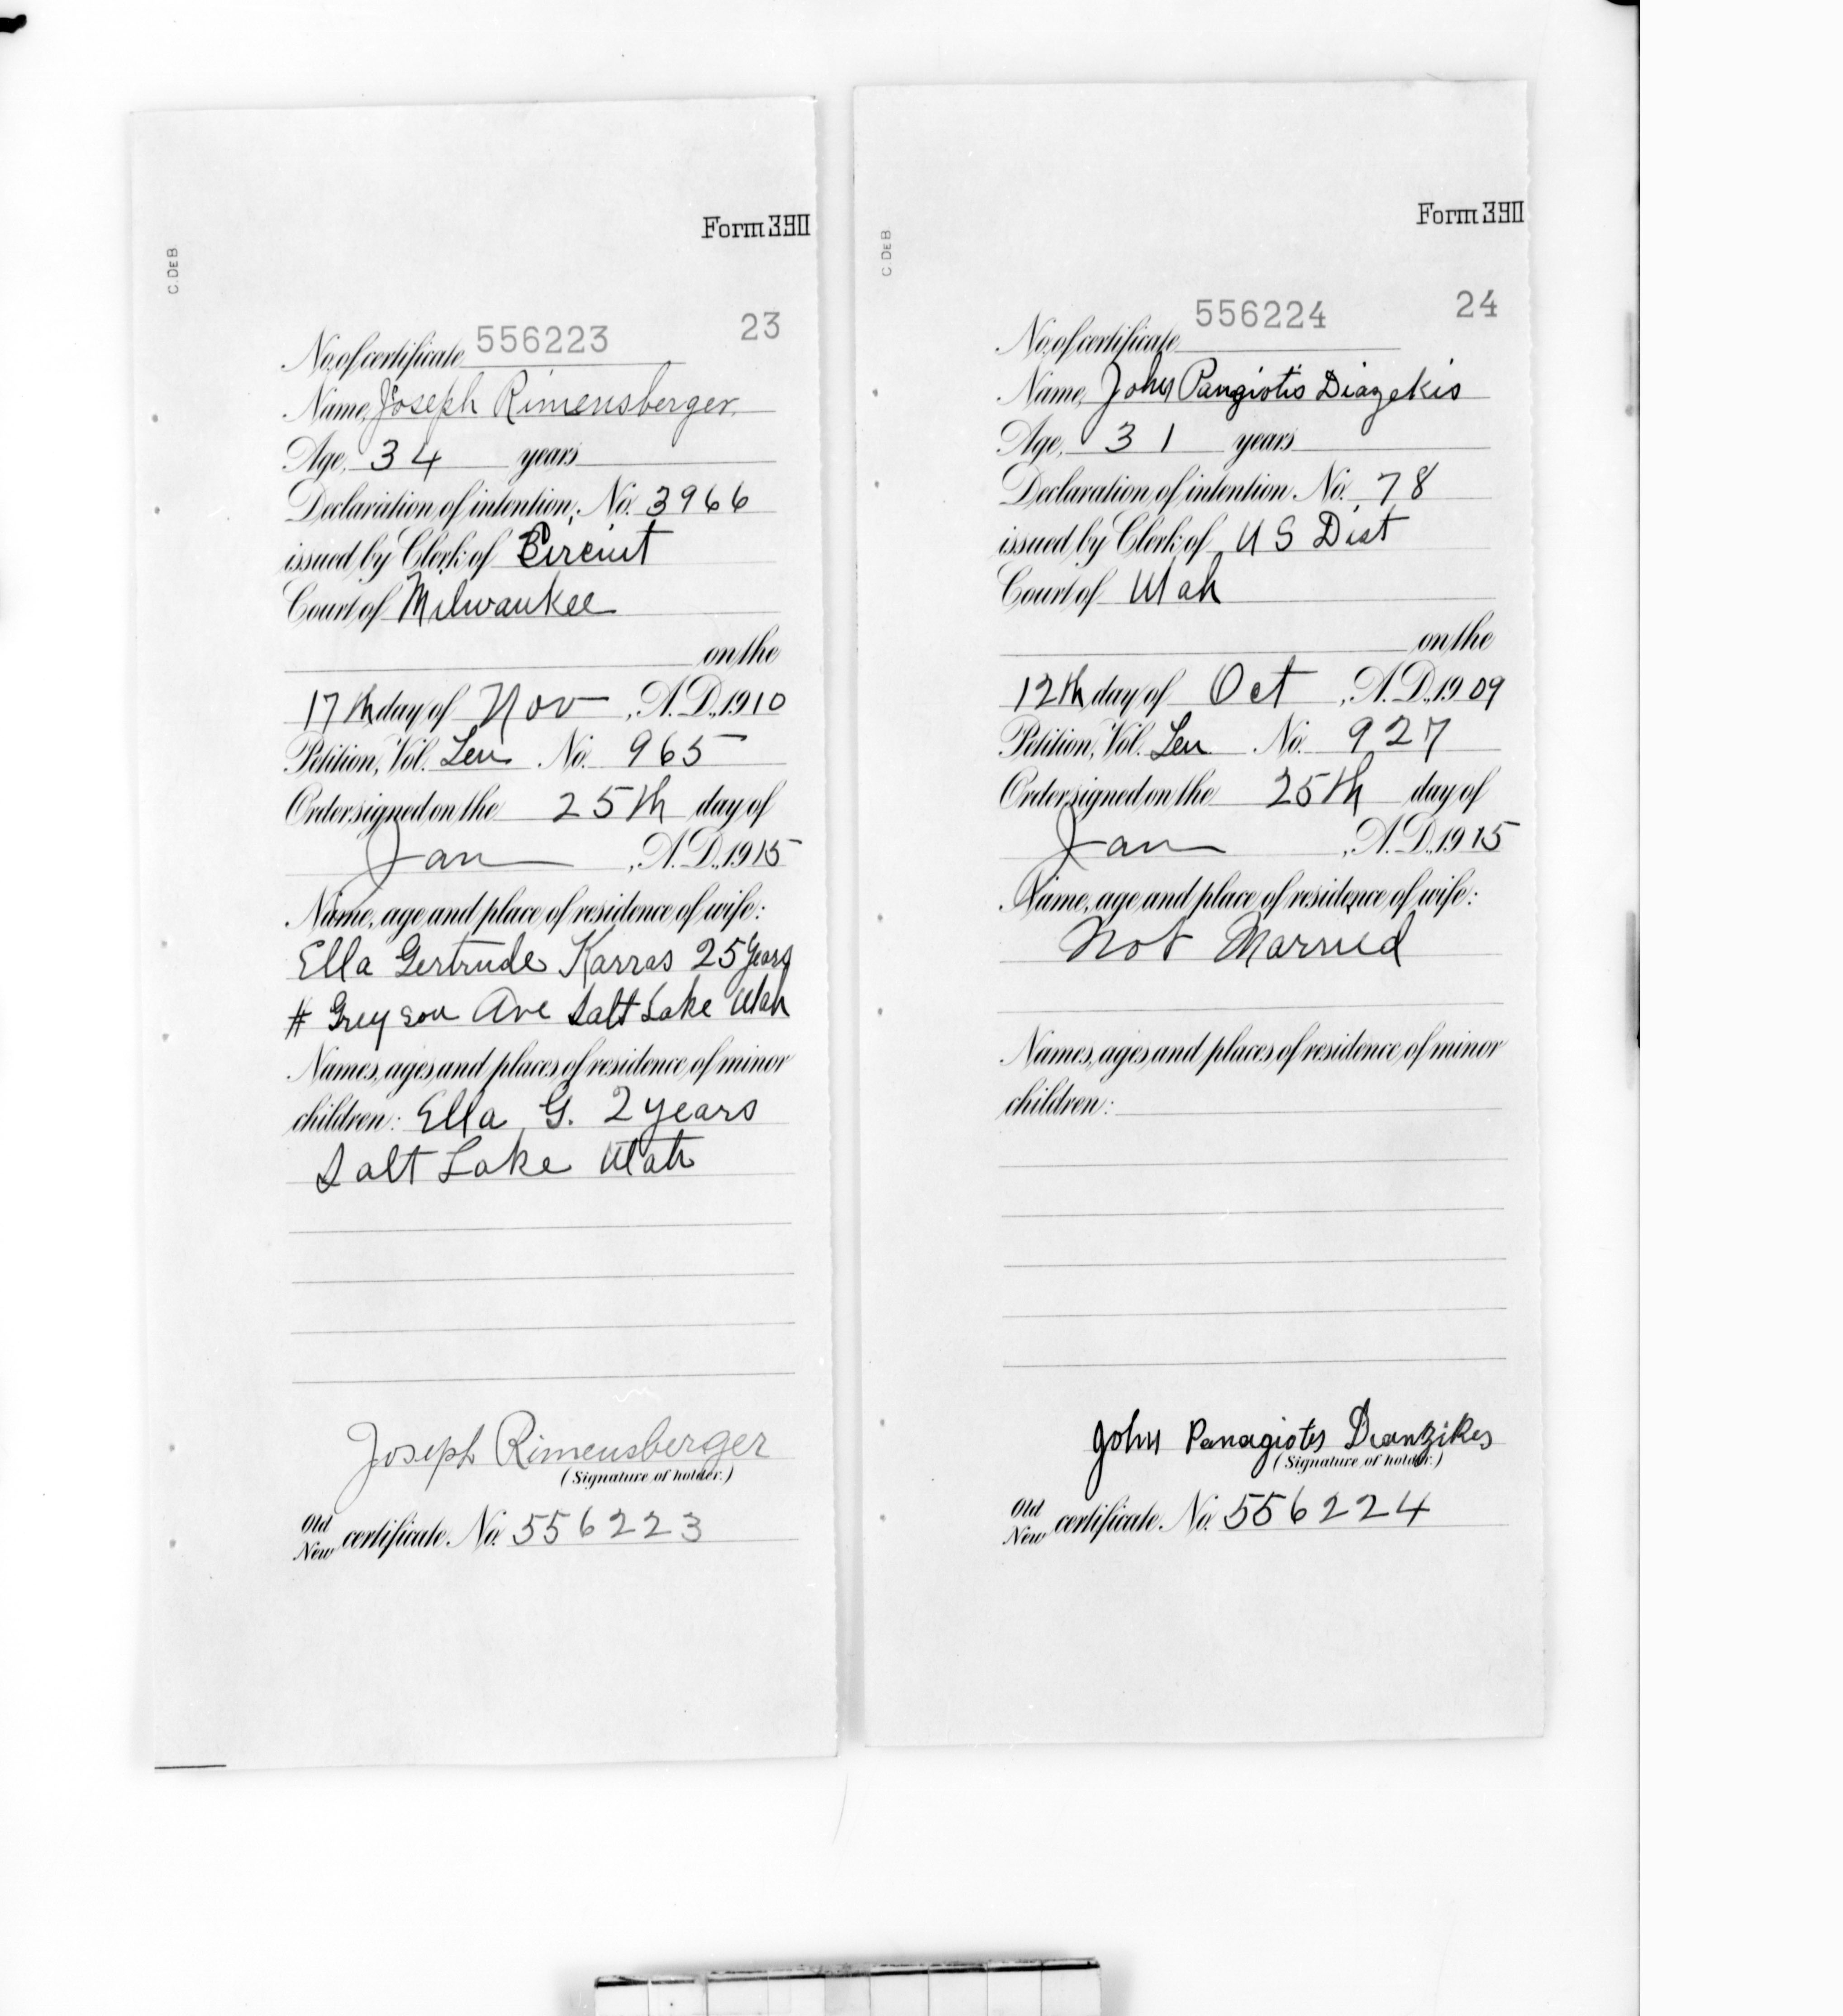 C. DEB
Form 390
No. of certificate 556223 23
Name, Joseph Rimensberger.
Age, 34 years
Declaration of intention, No. 3966
issued by Clerk of Circuit
Court of Milwaukee
on the
17th day of Nov, A.D., 1910
Petition, Vol. Ten No. 965
Order signed on the 25th day of
Jan, A.D., 1915
Name, age and place of residence of wife:
Ella Gertrude Karras 25 years
# Greyson Ave Salt Lake Utah
Names, ages and places of residence of minor
children: Ella G. 2 years
Salt Lake Utah
Joseph Rimensberger
(Signature of holder.)
Old
New certificate No. 556223
C. DEB
Form 390
No. of certificate 556224 24
Name, John Pangiotis Diazekis
Age, 31 years
Declaration of intention No. 78
issued by Clerk of U S Dist
Court of Utah
on the
12th day of Oct, A.D., 1909
Petition, Vol. Ten No. 927
Order signed on the 25th day of
Jan, A.D., 1915
Name, age and place of residence of wife:
Not Married
Names, ages and places of residence of minor
children:
John Panagiotis Dianzikes
(Signature of holder.)
Old
New certificate No. 556224